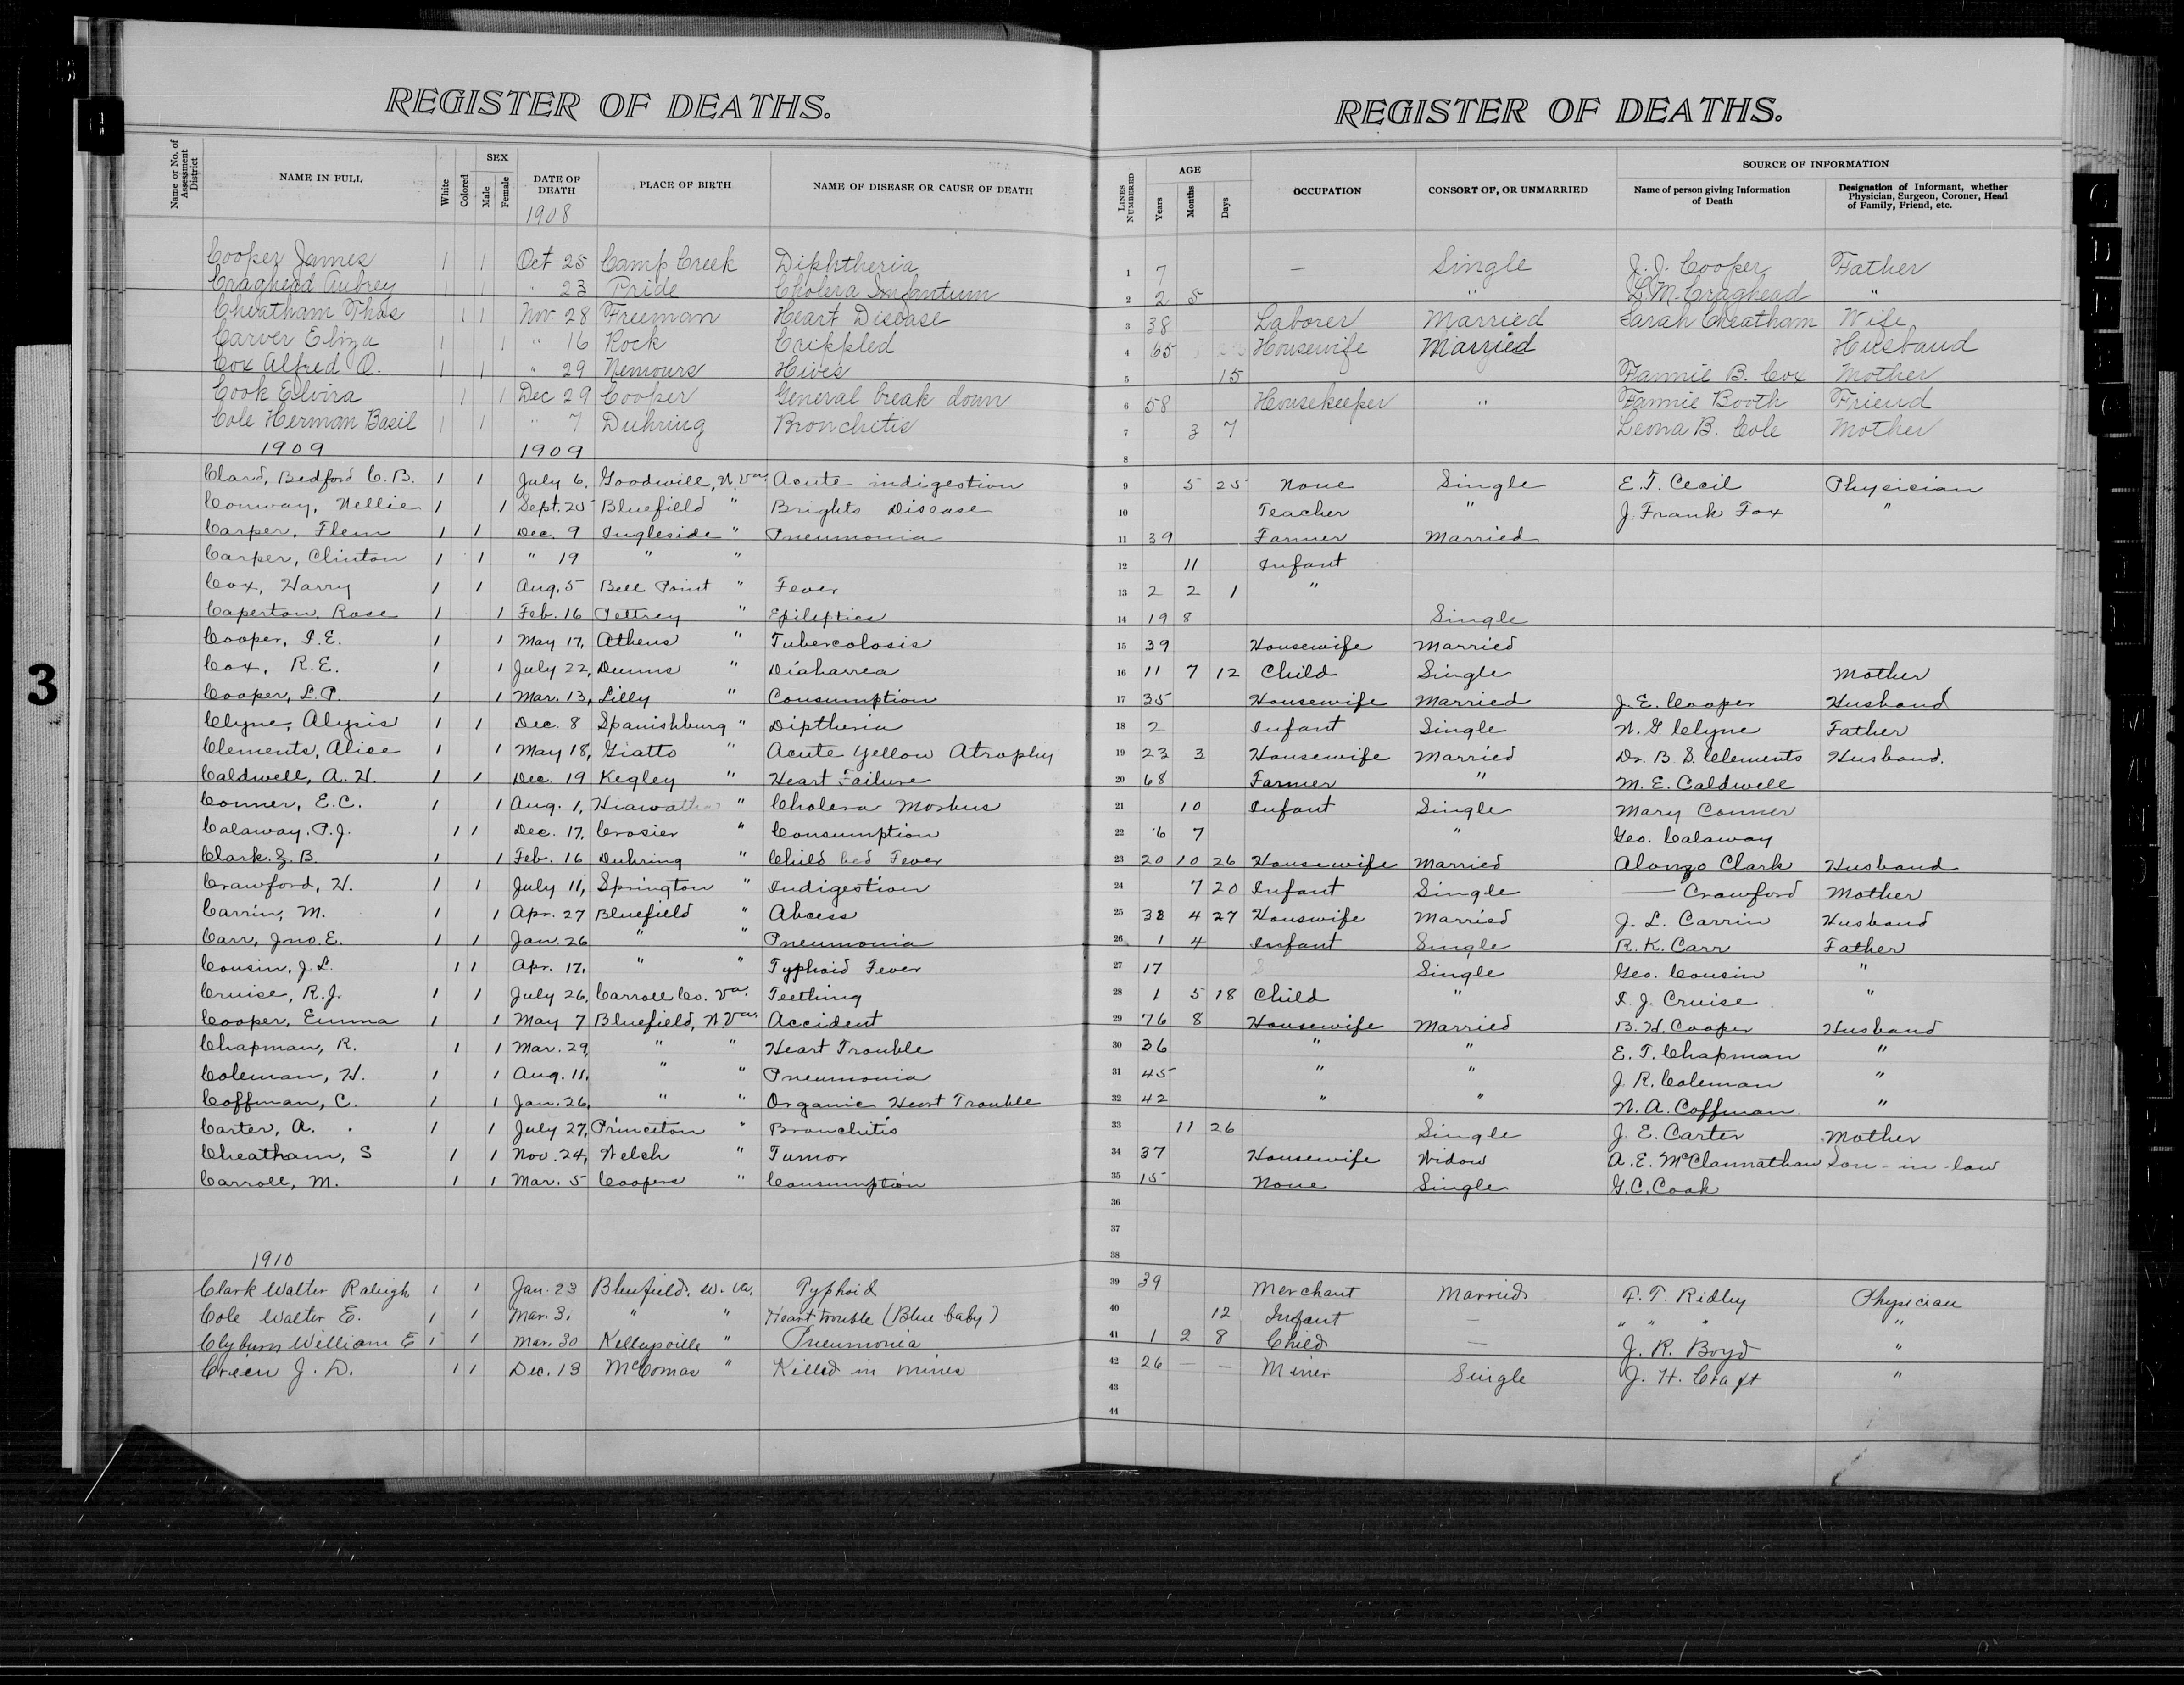 REGISTER OF DEATHS.
Name or No. of Assessment District
NAME IN FULL
White
Colored
SEX
Male
Female
DATE OF DEATH
1908
PLACE OF BIRTH
NAME OF DISEASE OR CAUSE OF DEATH
REGISTER OF DEATHS.
LINES NUMBERED
AGE
Years
Months
Days
OCCUPATION
CONSORT OF, OR UNMARRIED
SOURCE OF INFORMATION
Name of person giving Information of Death
Designation of Informant, whether Physician, Surgeon, Coroner, Head of Family, Friend, etc.
Cooper James 1 1 Oct 25 Camp Creek Diphtheria 1 7 — Single J. J. Cooper Father
Craghead Aubrey 1 1 " 23 Pride Cholera Infantum 2 2 5 " L. M. Craghead "
Cheatham Thos 1 1 Nov 28 Freeman Heart Disease 3 38 Laborer Married Sarah Cheatham Wife
Carver Eliza 1 1 " 16 Rock Crippled 4 65 Housewife Married Husband
Cox Alfred O. 1 1 " 29 Nemours Hives 5 15 Fannie B. Cox Mother
Cook Elvira 1 1 Dec 29 Cooper General break down 6 58 Housekeeper " Fannie Booth Friend
Cole Herman Basil 1 1 " 7 Duhring Bronchitis 7 3 7 Leona B. Cole Mother
1909 1909 8
Clard, Bedford C. B. 1 1 July 6, Goodwill, W. Va. Acute indigestion 9 5 25 None Single E. T. Cecil Physician
Conway, Nellie 1 1 Sept. 25 Bluefield " Brights Disease 10 Teacher " J. Frank Fox "
Carper, Flem 1 1 Dec. 9 Ingleside " Pneumonia 11 39 Farmer Married
Carper, Clinton 1 1 " 19 " " 12 11 Infant
Cox, Harry 1 1 Aug. 5 Bell Point " Fever 13 2 2 1 "
Caperton, Rose 1 1 Feb. 16 Pettrey " Epileptics 14 19 8 Single
Cooper, I. E. 1 1 May 17, Athens " Tubercolosis 15 39 Housewife Married
Cox, R. E. 1 1 July 22, Dunns " Diaharrea 16 11 7 12 Child Single Mother
Cooper, L. P. 1 1 Mar. 13, Lilly " Consumption 17 35 Housewife Married J. E. Cooper Husband
Clyne, Alysis 1 1 Dec. 8 Spanishburg " Diptheria 18 2 Infant Single W. G. Clyne Father
Clements, Alice 1 1 May 18, Giatto " Acute Yellow Atrophy 19 23 3 Housewife Married Dr. B. S. Clements Husband.
Caldwell, A. H. 1 1 Dec. 19 Kegley " Heart Failure 20 68 Farmer " M. E. Caldwell
Conner, E. C. 1 1 Aug. 1, Hiawatha " Cholera Morbus 21 10 Infant Single Mary Conner
Calaway, P. J. 1 1 Dec. 17, Crosier " Consumption 22 6 7 " Geo. Calaway
Clark. Z. B. 1 1 Feb. 16 Duhring " Child bed Fever 23 20 10 26 Housewife Married Alonzo Clark Husband
Crawford, H. 1 1 July 11, Springton " Indigestion 24 7 20 Infant Single — Crawford Mother
Carrin, M. 1 1 Apr. 27 Bluefield " Abcess 25 38 4 27 Houswife Married J. L. Carrin Husband
Carr, Jno. E. 1 1 Jan. 26 " " Pneumonia 26 1 4 Infant Single R. K. Carr Father
Cousin, J. L. 1 1 Apr. 17, " " Typhoid Fever 27 17 Single Geo. Cousin "
Cruise, R. J. 1 1 July 26, Carroll Co. Va. Teething 28 1 5 18 Child " I. J. Cruise "
Cooper, Emma 1 1 May 7 Bluefield, W Va. Accident 29 76 8 Housewife Married B. H. Cooper Husband
Chapman, R. 1 1 Mar. 29, " " Heart Trouble 30 36 " " E. T. Chapman "
Coleman, H. 1 1 Aug. 11, " " Pneumonia 31 45 " " J. R. Coleman "
Coffman, C. 1 1 Jan. 26, " " Organic Heart Trouble 32 42 " " W. A. Coffman "
Carter, A. 1 1 July 27, Princeton " Bronchitis 33 11 26 Single J. E. Carter Mother
Cheatham, S 1 1 Nov. 24, Welch " Tumor 34 37 Housewife Widow A. E. McClannathan Son-in-law
Carroll, M. 1 1 Mar. 5 Coopers " Consumption 35 15 None Single G. C. Cook
36
37
1910 38
Clark Walter Raleigh 1 1 Jan. 23 Bluefield. W. Va. Typhoid 39 39 Merchant Married F. T. Ridley Physician
Cole Walter E. 1 1 Mar. 3. " " Heart trouble (Blue baby) 40 12 Infant — " " " "
Clyburn William E 1 1 Mar. 30 Kelleysville " Pneumonia 41 1 2 8 Child — J. R. Boyd "
Creen J. D. 1 1 Dec. 13 McComas " Killed in mines 42 26 — — Miner Single J. H. Craft "
43
44
3